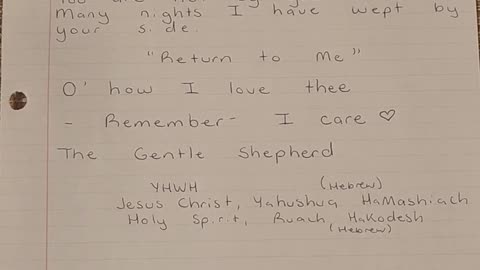 Many nights I have wept by
your side.
"Return to Me"
O' how I love thee
- Remember - I care ♡
The Gentle Shepherd
YHWH (Hebrew)
Jesus Christ, Yahushua HaMashiach
Holy Spirit, Ruach HaKodesh
(Hebrew)